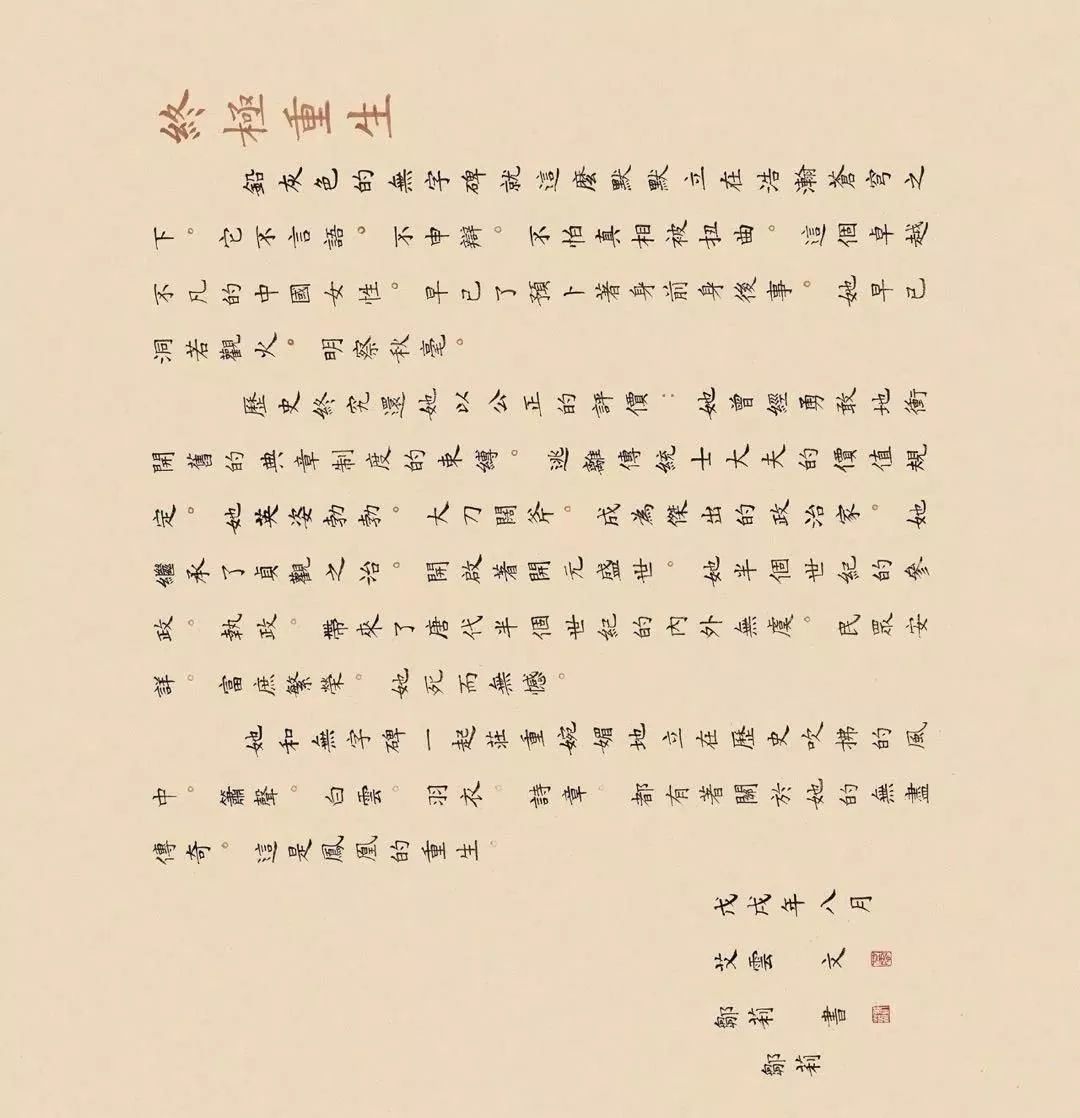 終極重生
鉛灰色的無字碑就這麼默默立在浩瀚蒼穹之
下。它不言語。不申辯。不怕真相被扭曲。這個卓越
不凡的中國女性。早已了預卜著身前身後事。她早已
洞若觀火。明察秋毫。
歷史終究還她以公正的評價：她曾經勇敢地衝
開舊的典章制度的束縛。逃離傳統士大夫的價值規
定。她英姿勃勃。大刀闊斧。成為傑出的政治家。她
繼承了貞觀之治。開啟著開元盛世。她半個世紀的參
政。執政。帶來了唐代半個世紀的內外無虞。民眾安
詳。富庶繁榮。她死而無憾。
她和無字碑一起莊重婉媚地立在歷史吹拂的風
中。簫聲。白雲。羽衣。詩章。都有著關於她的無盡
傳奇。這是鳳凰的重生。
戊戌年八月
艾雲 文
鄒莉 書
鄒莉